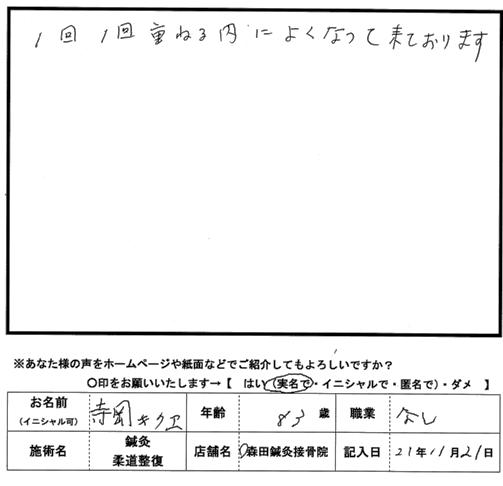 1回1回重ねる内によくなって来ております
※あなた様の声をホームページや紙面などでご紹介してもよろしいですか?
〇印をお願いいたします→【 はい(実名で・イニシャルで・匿名で)・ダメ 】
お名前 寺岡キクエ 年齢 83歳 職業 なし
(イニシャル可)
施術名 鍼灸 店舗名 森田鍼灸接骨院 記入日 21年11月21日
柔道整復